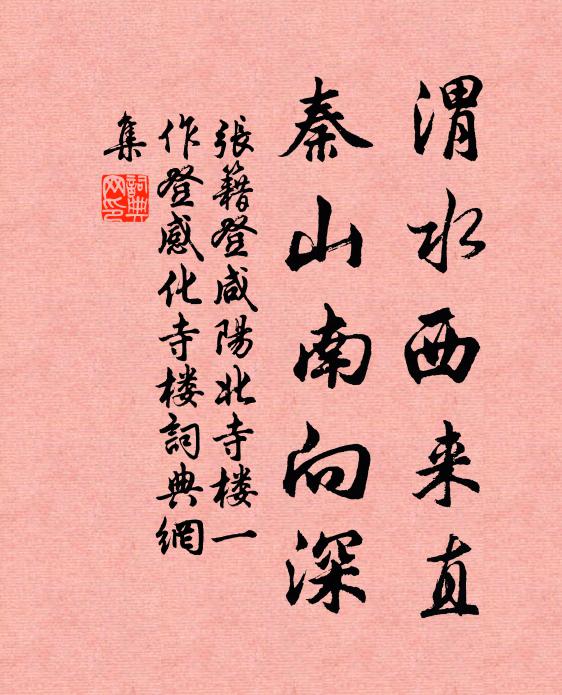 渭水西来直
秦山南向深
張籍登咸陽北寺楼一
作登感化寺楼詞典網
集
詞典网印